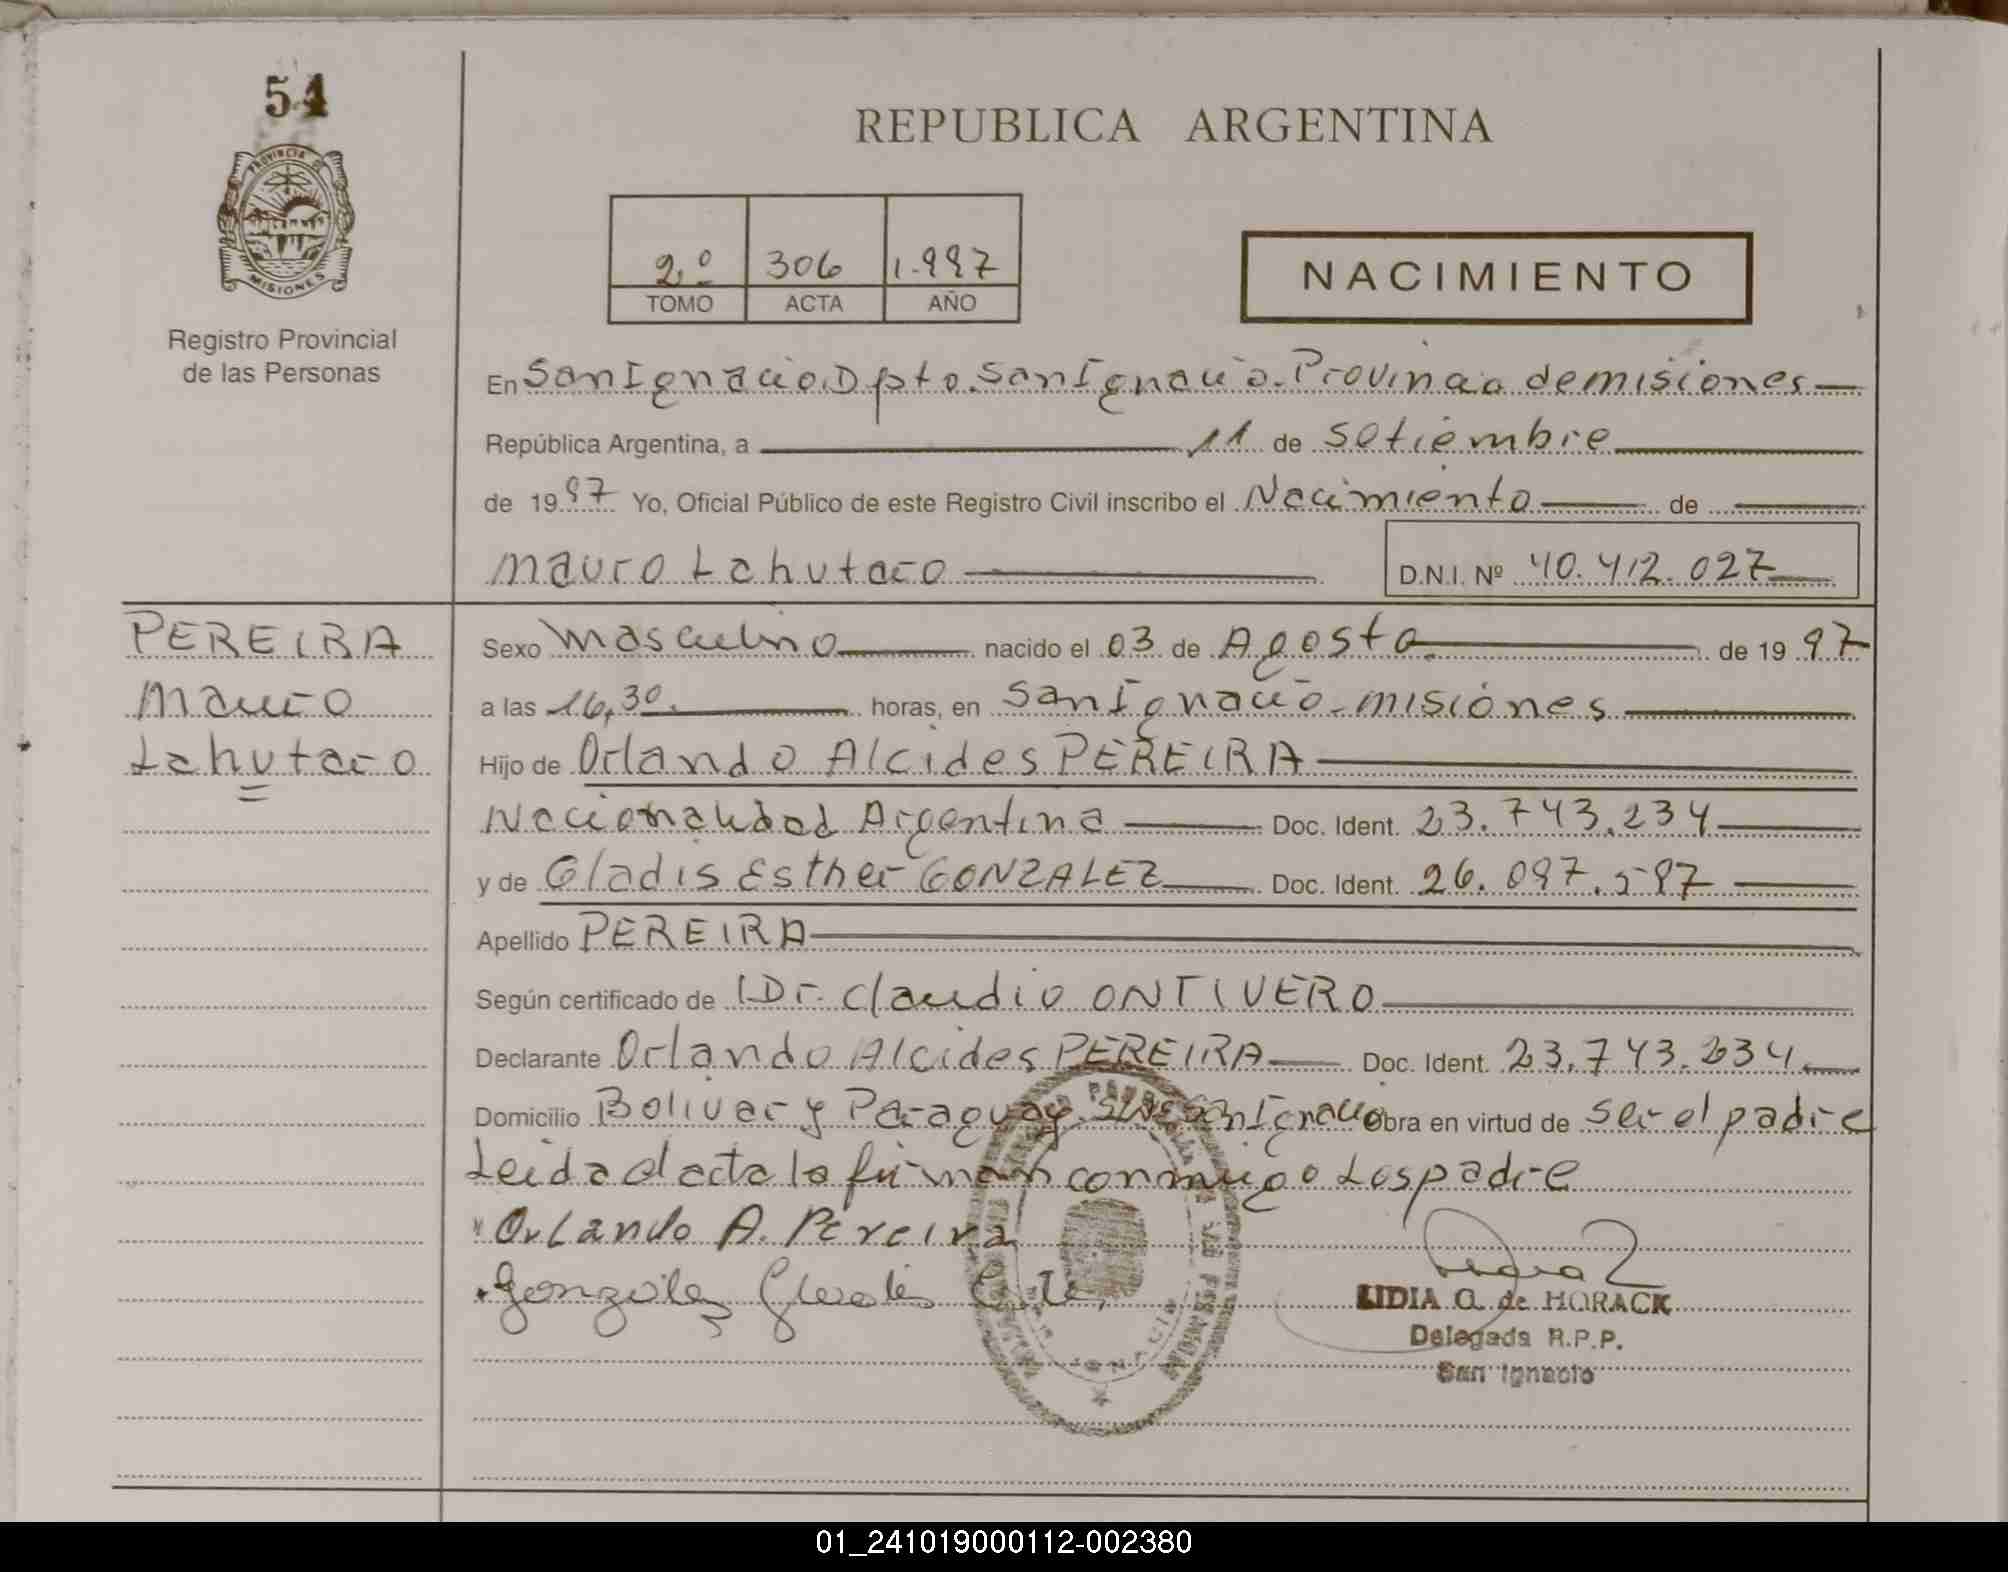 51
PROVINCIA DE
MISIONES
Registro Provincial
de las Personas
REPUBLICA ARGENTINA
2º 306 1.997
TOMO ACTA AÑO
NACIMIENTO
En San Ignacio. Dpto. San Ignacio. Provincia de misiones
República Argentina, a 11 de Setiembre
de 1997 Yo, Oficial Público de este Registro Civil inscribo el Nacimiento de
Mauro Lahutaro D.N.I. Nº 40.412.027
PEREIRA
Mauro
Lahutaro
Sexo Masculino nacido el 03 de Agosto. de 1997
a las 16,30. horas, en San Ignacio - misiones
Hijo de Orlando Alcides PEREIRA
Nacionalidad Argentina Doc. Ident. 23.743.234
y de Gladis Esther GONZALEZ Doc. Ident. 26.097.587
Apellido PEREIRA
Según certificado de Dr. Claudio ONTIVERO
Declarante Orlando Alcides PEREIRA Doc. Ident. 23.743.234
Domicilio Bolivar y Paraguay San Ignacio Obra en virtud de ser el padre
Leida el acta la firman conmigo Los padre
Orlando A. Pereira
Gonzalez Gladis
LIDIA G. de HORACK
Delegada R.P.P.
San Ignacio
01_241019000112-002380